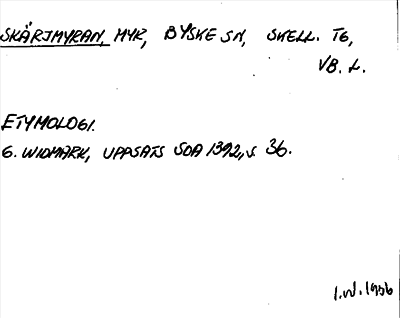 SKÄRTMYRAN, MYR, BYSKE SN, SKELL. TG,
VB. L.
ETYMOLOGI.
G. WIDMARK, UPPSATS SOA 1392, s 36.
I.W. 1956